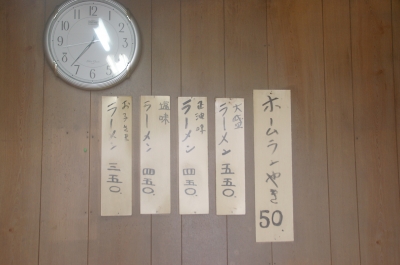 ホームランやき
50
大盛
ラーメン
五五〇.
正油味
ラーメン
四五〇.
塩味
ラーメン
四五〇.
お子さま
ラーメン
三五〇.
12
1
2
3
4
5
6
7
8
9
10
11